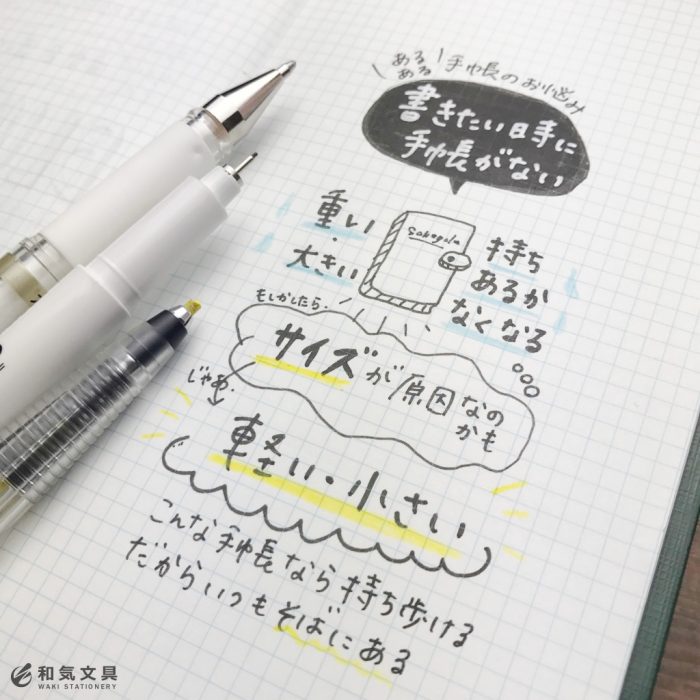 あるある
手帳のお悩み
書きたい日手に
手帳がない
重い・
大きい
持ち
あるか
なくなる
もしかしたら、
サイズが原因なの
かも
じゃあ、
軽い・小さい
こんな手帳なら持ち歩ける
だからいつもそばにある
和気文具
WAKI STATIONERY